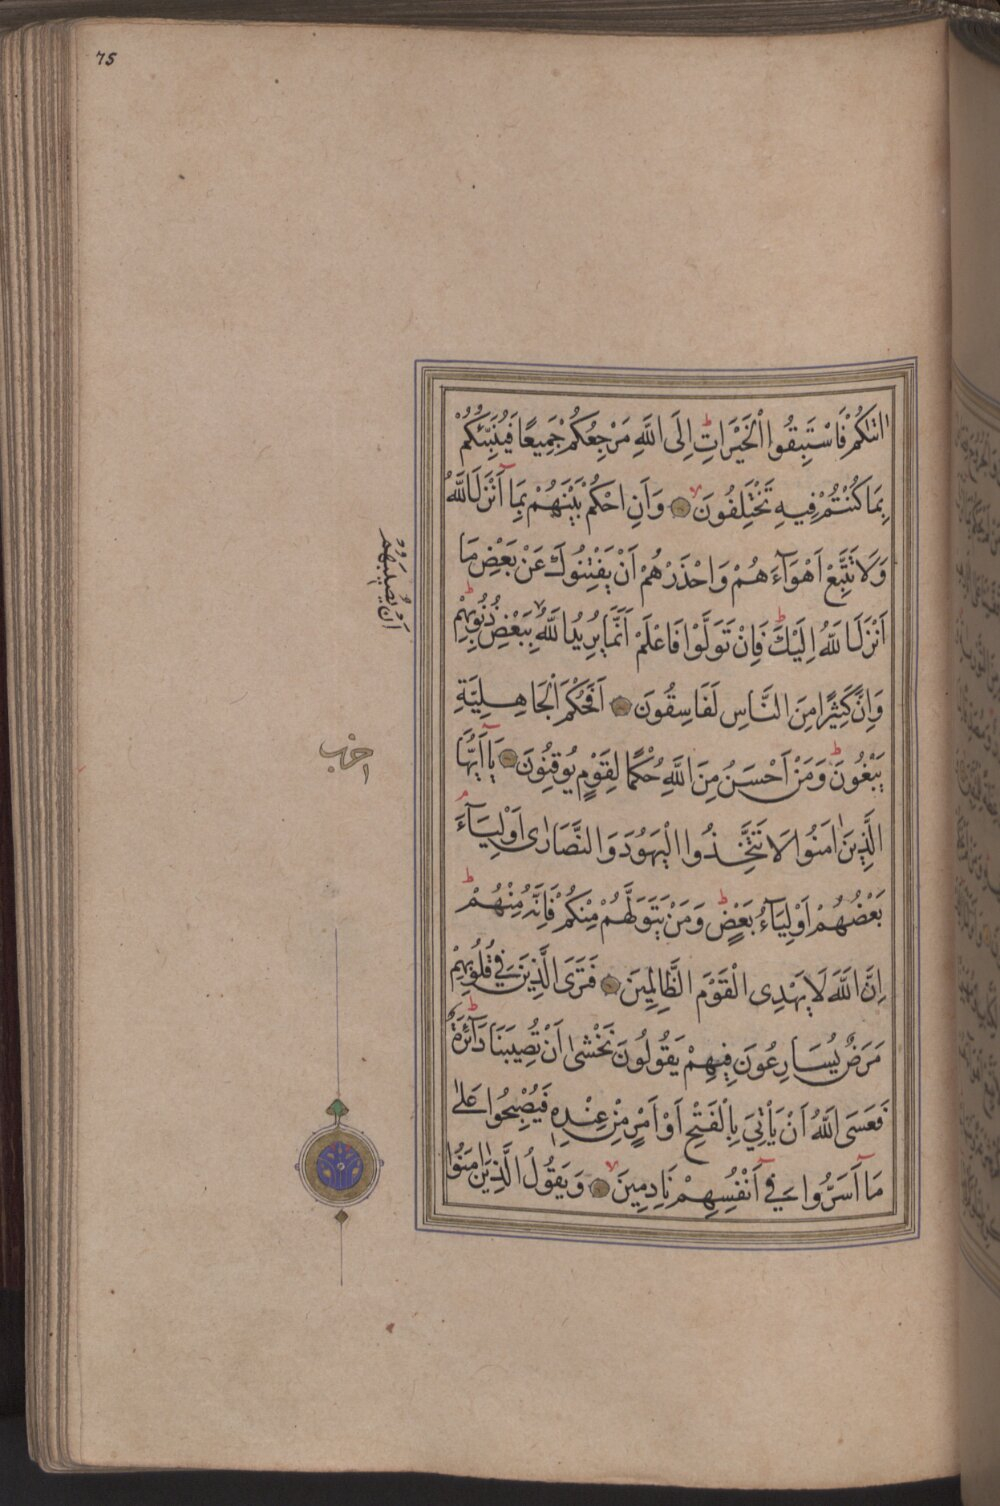 75
اٰتٰيكُمْ فَاسْتَبِقُوا الْخَيْرَاتِ اِلَى اللَّهِ مَرْجِعُكُمْ جَمِيعًا فَيُنَبِّئُكُمْ
بِمَا كُنْتُمْ فِيهِ تَخْتَلِفُونَ وَاَنِ احْكُمْ بَيْنَهُمْ بِمَآ اَنْزَلَ اللَّهُ
وَلَا تَتَّبِعْ اَهْوَآءَهُمْ وَاحْذَرْهُمْ اَنْ يَفْتِنُوكَ عَنْ بَعْضِ مَا
اَنْزَلَ اللَّهُ اِلَيْكَ فَاِنْ تَوَلَّوْا فَاعْلَمْ اَنَّمَا يُرِيدُ اللَّهُ بِبَعْضِ ذُنُوبِهِمْ
اَنْ يُصِيبَهُمْ
وَاِنَّ كَثِيرًا مِنَ النَّاسِ لَفَاسِقُونَ اَفَحُكْمَ الْجَاهِلِيَّةِ
يَبْغُونَ وَمَنْ اَحْسَنُ مِنَ اللَّهِ حُكْمًا لِقَوْمٍ يُوقِنُونَ يَآ اَيُّهَا
حزب
الَّذِينَ اٰمَنُوا لَا تَتَّخِذُوا الْيَهُودَ وَالنَّصَارٰى اَوْلِيَآءَ
بَعْضُهُمْ اَوْلِيَآءُ بَعْضٍ وَمَنْ يَتَوَلَّهُمْ مِنْكُمْ فَاِنَّهُ مِنْهُمْ
اِنَّ اللَّهَ لَا يَهْدِى الْقَوْمَ الظَّالِمِينَ فَتَرَى الَّذِينَ فِي قُلُوبِهِمْ
مَرَضٌ يُسَارِعُونَ فِيهِمْ يَقُولُونَ نَخْشٰى اَنْ تُصِيبَنَا دَآئِرَةٌ
فَعَسَى اللَّهُ اَنْ يَأْتِيَ بِالْفَتْحِ اَوْ اَمْرٍ مِنْ عِنْدِهِ فَيُصْبِحُوا عَلٰى
مَآ اَسَرُّوا فِيٓ اَنْفُسِهِمْ نَادِمِينَ وَيَقُولُ الَّذِينَ اٰمَنُوا